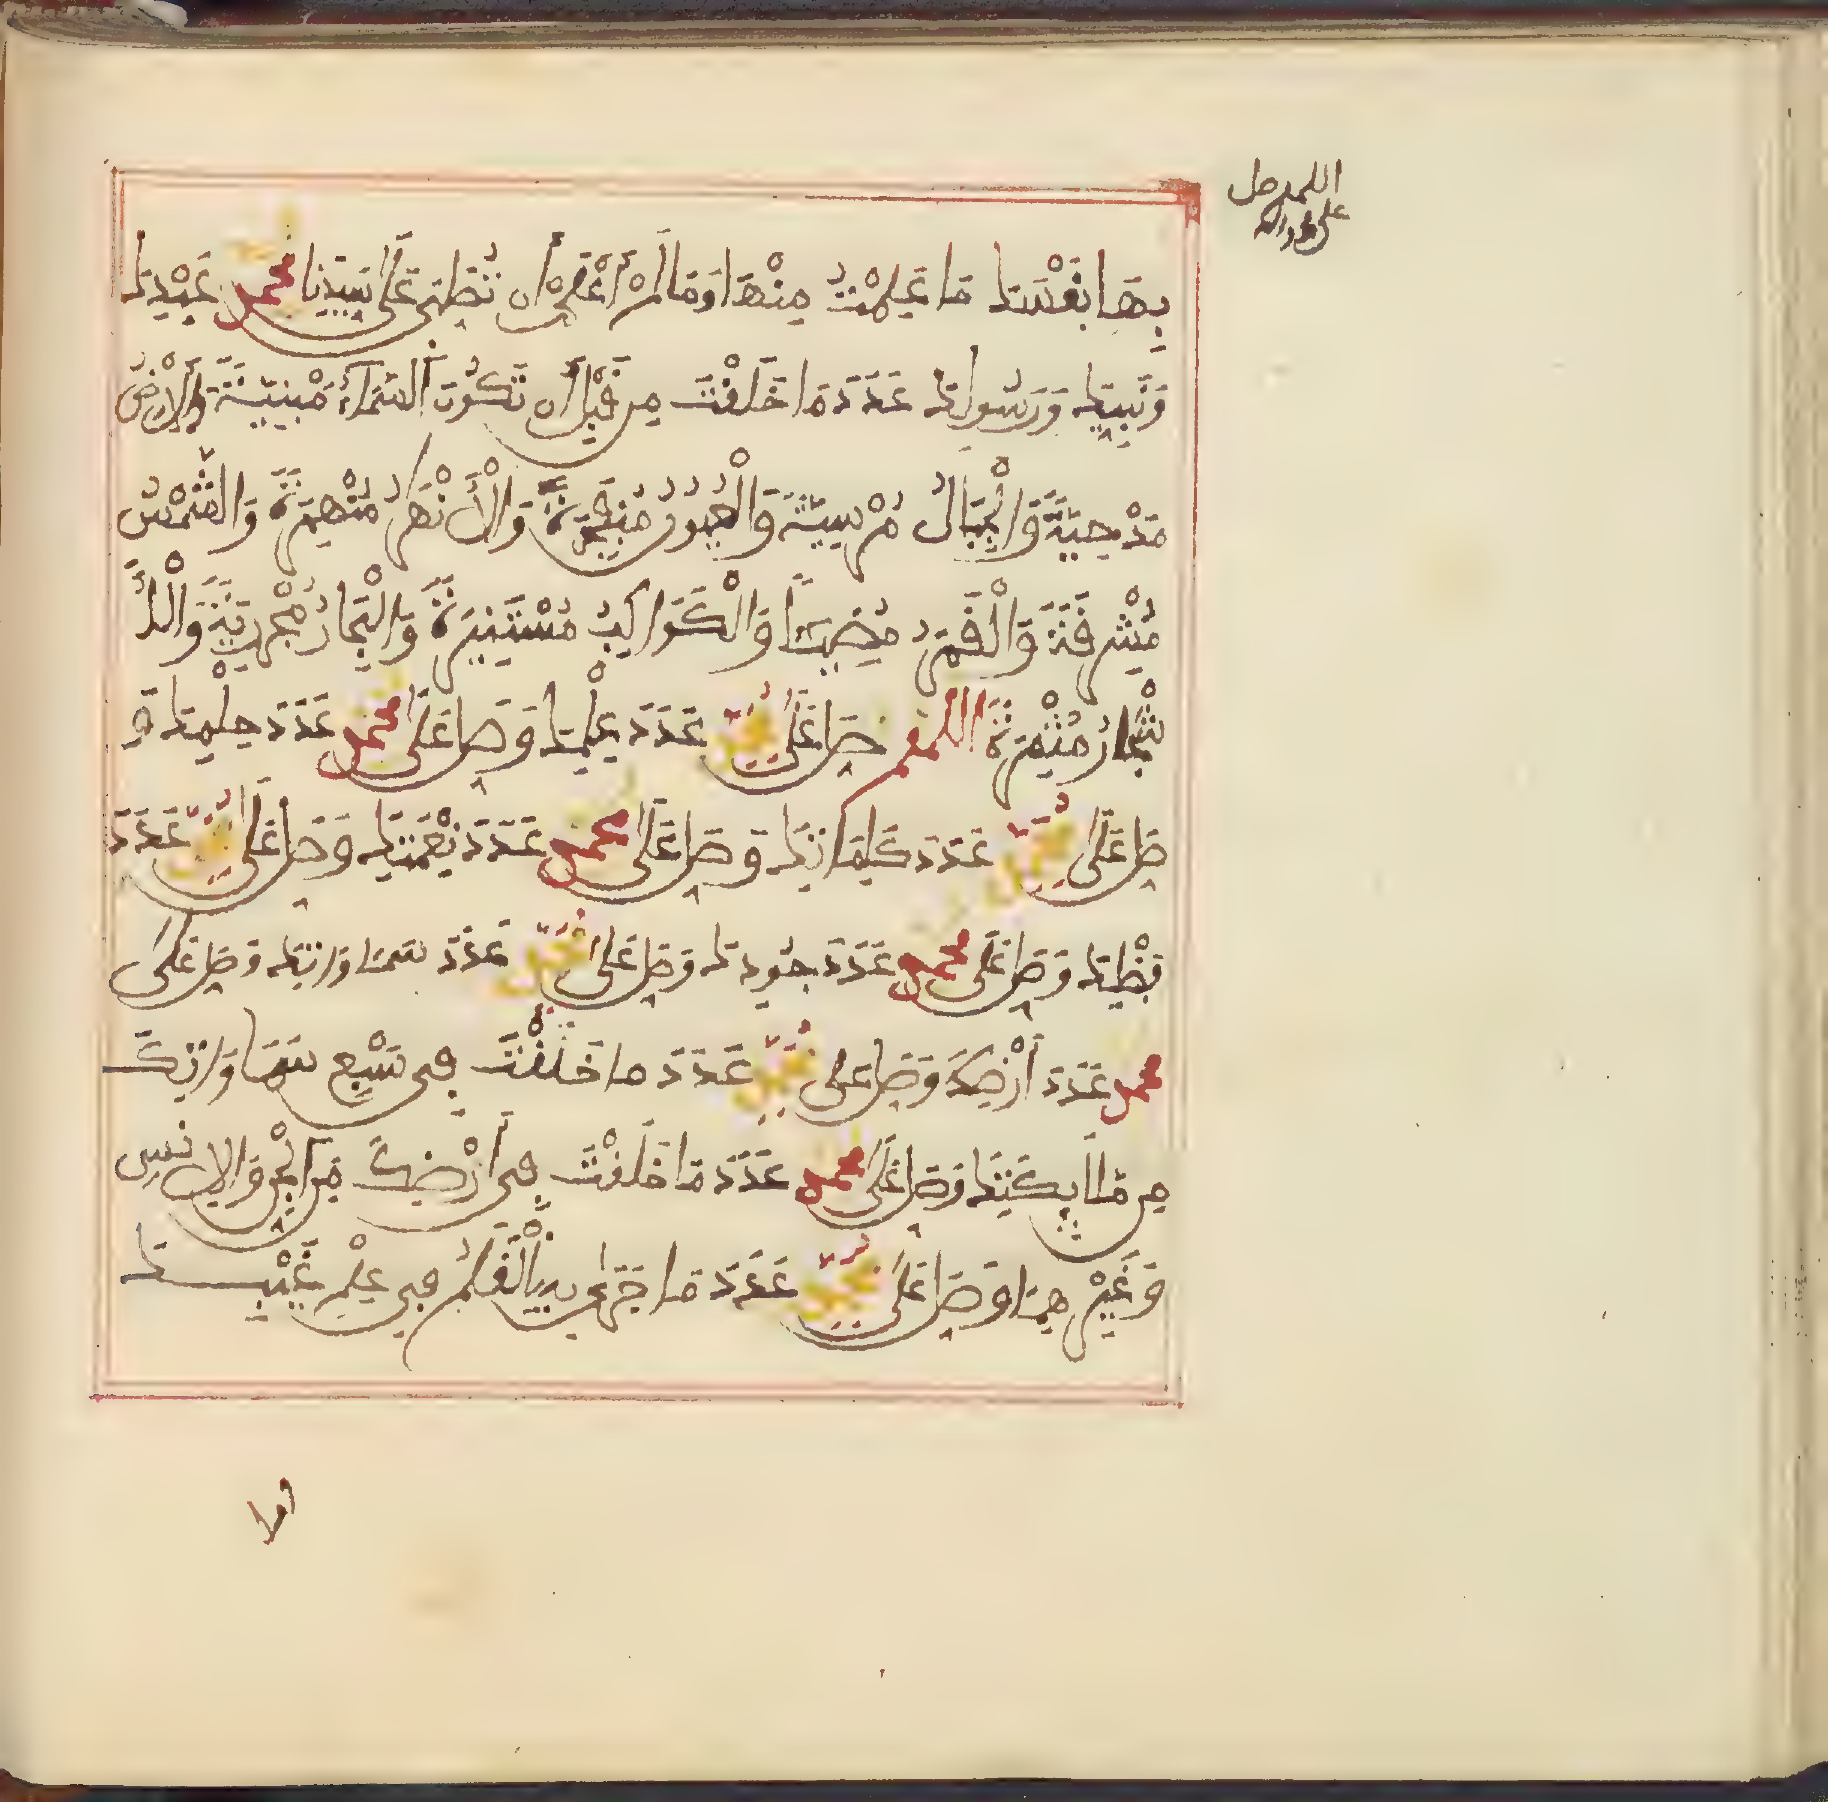 اللهم صل
على محمد واله
بِهَا نَفْسَكَ مَا عَلِمْتُ مِنْهَا وَمَا لَمْ أَعْلَمْ أَن تُصَلِّيَ عَلَىٰ سَيِّدِنَا مُحَمَّدٍ عَبْدِكَ
وَنَبِيِّكَ وَرَسُولِكَ عَدَدَ مَا خَلَقْتَ مِن قَبْلِ أَن تَكُونَ السَّمَاءُ مَبْنِيَّةً وَالْأَرْضُ
مَدْحِيَّةً وَالْجِبَالُ مُرْسِيَّةً وَالْعُيُونُ مُنفَجِرَةً وَالْأَنْهَارُ مُنْهَمِرَةً وَالشَّمْسُ
مُشْرِقَةً وَالْقَمَرُ مُضِيئًا وَالْكَوَاكِبُ مُسْتَنِيرَةً وَالْبِحَارُ مُجْرِيَةً وَالْأَ
شْجَارُ مُثْمِرَةً اللهم صَلِّ عَلَىٰ مُحَمَّدٍ عَدَدَ عِلْمِكَ وَصَلِّ عَلَىٰ مُحَمَّدٍ عَدَدَ حِلْمِكَ وَ
صَلِّ عَلَىٰ مُحَمَّدٍ عَدَدَ كَلِمَاتِكَ وَصَلِّ عَلَىٰ مُحَمَّدٍ عَدَدَ نِعْمَتِكَ وَصَلِّ عَلَىٰ مُحَمَّدٍ عَدَدَ
فَضْلِكَ وَصَلِّ عَلَىٰ مُحَمَّدٍ عَدَدَ جُودِكَ وَصَلِّ عَلَىٰ مُحَمَّدٍ عَدَدَ سَمَاوَاتِكَ وَصَلِّ عَلَىٰ
مُحَمَّدٍ عَدَدَ أَرْضِكَ وَصَلِّ عَلَىٰ مُحَمَّدٍ عَدَدَ مَا خَلَقْتَ فِي سَبْعِ سَمَاوَاتِكَ
مِن مَّلَائِكَتِكَ وَصَلِّ عَلَىٰ مُحَمَّدٍ عَدَدَ مَا خَلَقْتَ فِي أَرْضِكَ مِنَ الْجِنِّ وَالْإِنسِ
وَغَيْرِهِمَا وَصَلِّ عَلَىٰ مُحَمَّدٍ عَدَدَ مَا جَرَىٰ بِهِ الْقَلَمُ فِي عِلْمِ غَيْبِكَ